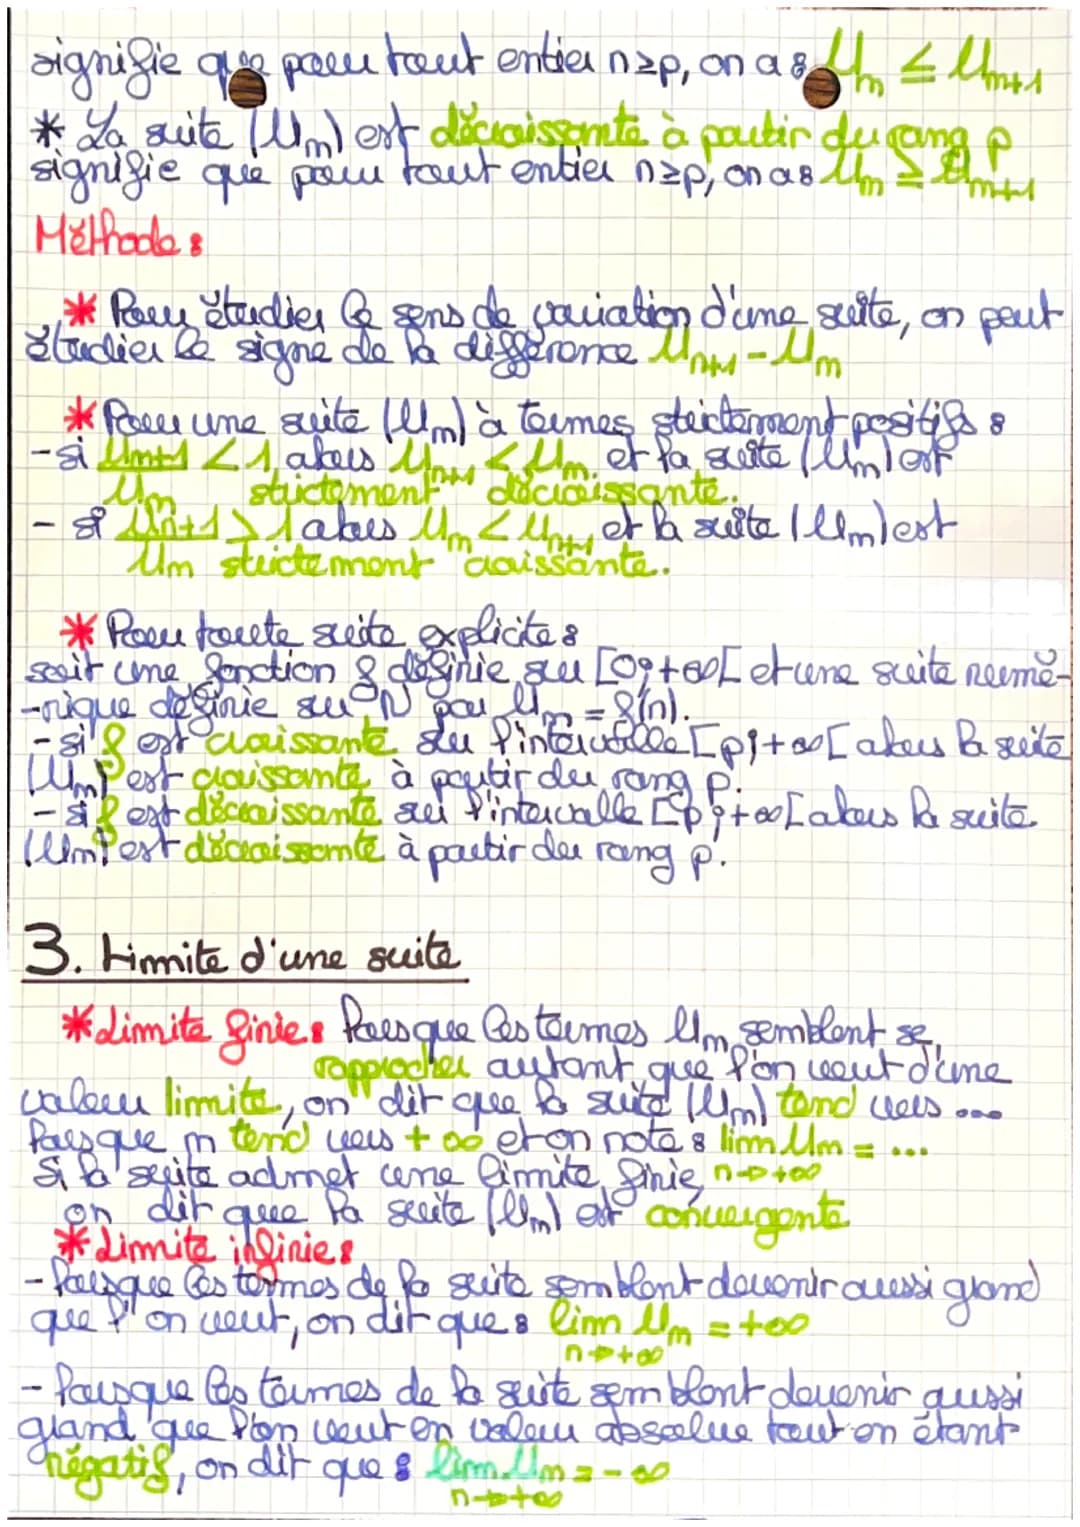 signifie que pour tout entier n≥p, on a : Un ≤ Un+1
* La suite (Un) est décroissante à partir du rang p
signifie que pour tout entier n≥p, on a : Un ≥ Un+1
Méthode :
* Pour étudier le sens de variation d'une suite, on peut
étudier le signe de la différence Un+1 - Un
* Pour une suite (Un) à termes strictement positifs :
- si Un+1/Un < 1, alors Un+1 < Un et la suite (Un) est
strictement décroissante.
- si Un+1/Un > 1 alors Un < Un+1 et la suite (Un) est
strictement croissante.
* Pour toute suite explicite :
soit une fonction f définie sur [0;+∞[ et une suite numé-
-rique définie sur ℕ par Un = f(n).
- si f est croissante sur l'intervalle [p;+∞[ alors la suite
(Un) est croissante à partir du rang p.
- si f est décroissante sur l'intervalle [p;+∞[ alors la suite
(Un) est décroissante à partir du rang p.
3. Limite d'une suite
* Limite finie : lorsque les termes Un semblent se
rapprocher autant que l'on veut d'une
valeur limite, on dit que la suite (Un) tend vers ...
lorsque n tend vers +∞ et on note : lim Un = ...
n→+∞
Si la suite admet une limite finie,
on dit que la suite (Un) est convergente
* Limite infinie :
- lorsque les termes de la suite semblent devenir aussi grand
que l'on veut, on dit que : lim Un = +∞
n→+∞
- lorsque les termes de la suite semblent devenir aussi
grand que l'on veut en valeur absolue tout en étant
négatif, on dit que : lim Un = -∞
n→+∞